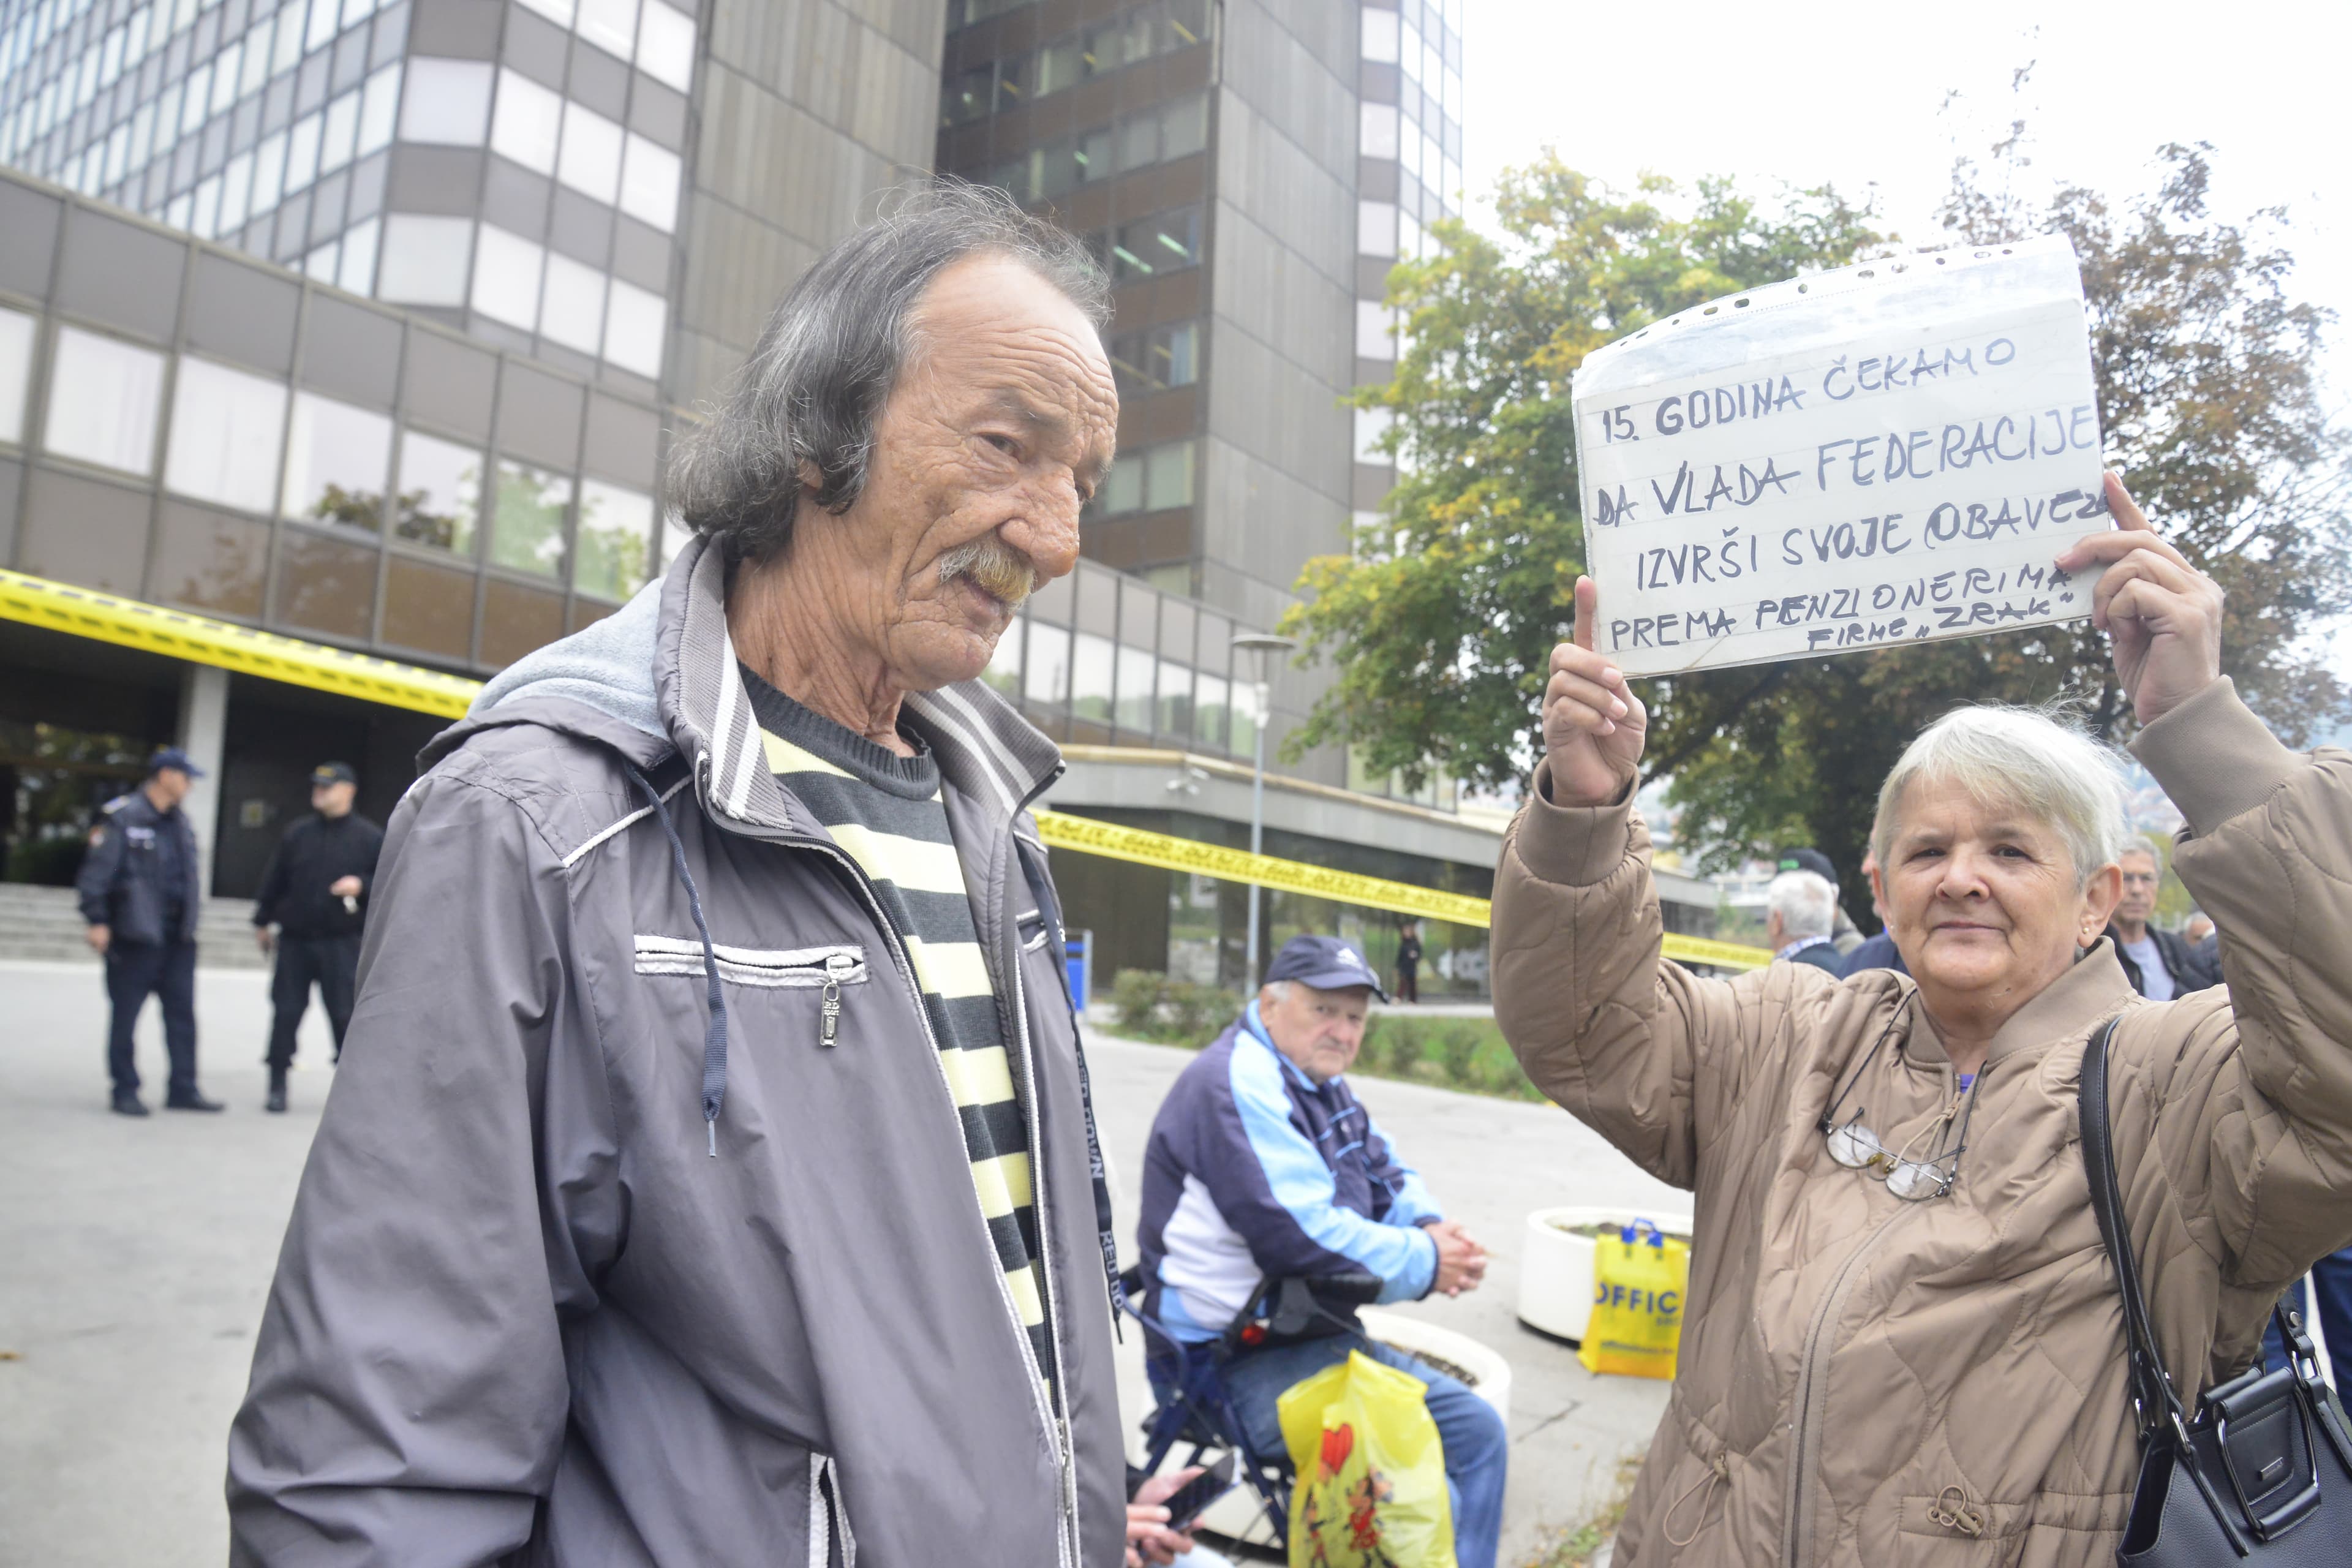 15. GODINA ČEKAMO
DA VLADA FEDERACIJE
IZVRŠI SVOJE OBAVEZE
PREMA PENZIONERIMA
FIRME „ZRAK“
OFFIC